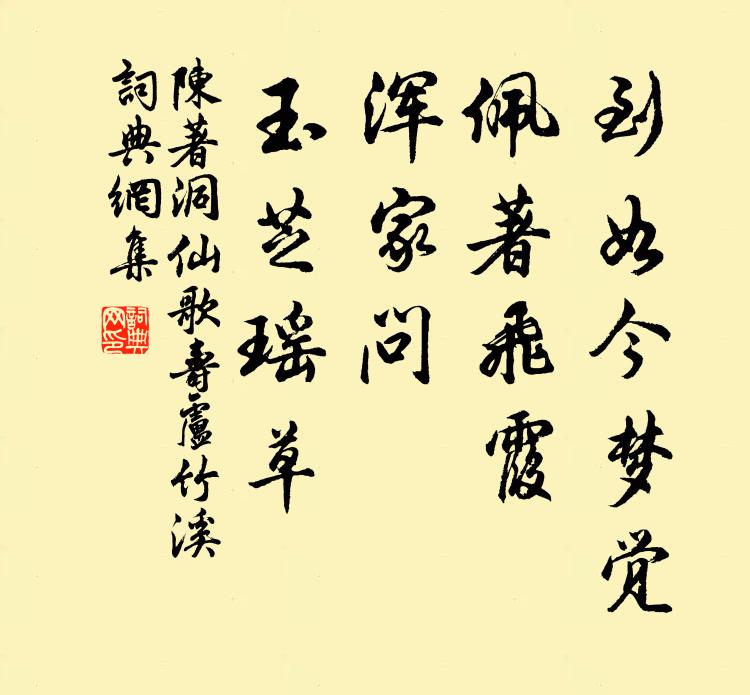 到如今梦觉
佩著飛霞
浑家问
玉芝瑶草
陳著洞仙歌壽盧竹溪
詞典網集
詞典网印